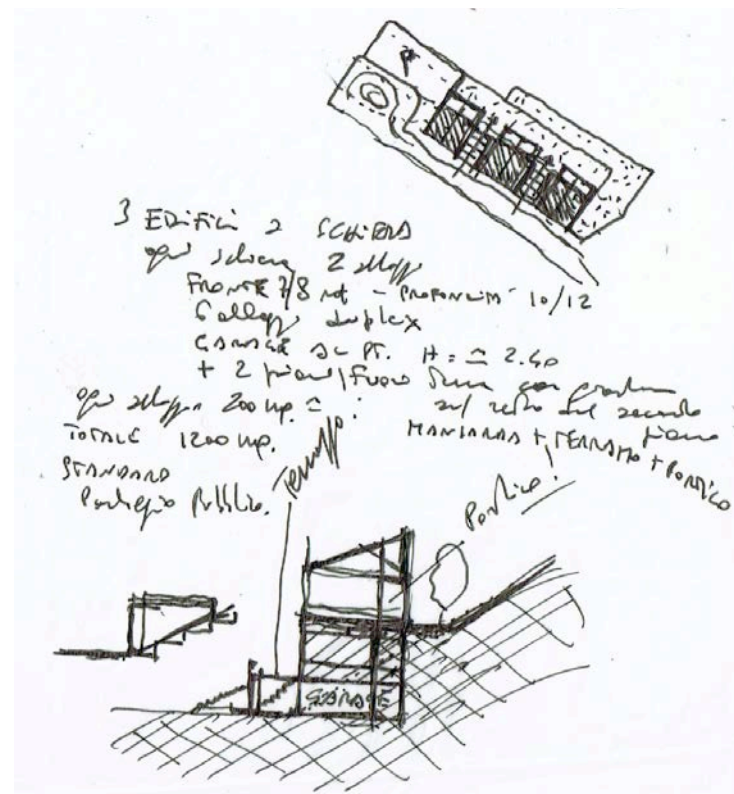 P
3 EDIFICI a SCHIERA
ogni schiera 2 alloggi
FRONTE 7/8 mt - PROFONDITÀ 10/12
6 alloggi duplex
GARAGE al PT. H = ≃ 2.40
+ 2 piani fuori terra con giardino
sul retro del secondo piano
ogni alloggio 200 mq. ≃
TOTALE 1200 mq.
MANSARDA + TERRAZZO + PORTICO
STANDARD
Parcheggio Pubblico.
Terrazzo
Portico
GARAGE